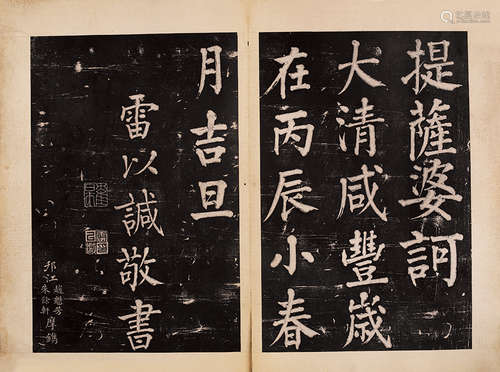 提薩婆訶
大清咸豐歲
在丙辰小春
月吉旦
雷以諴敬書
邗江
朱詠軒
摩鐫